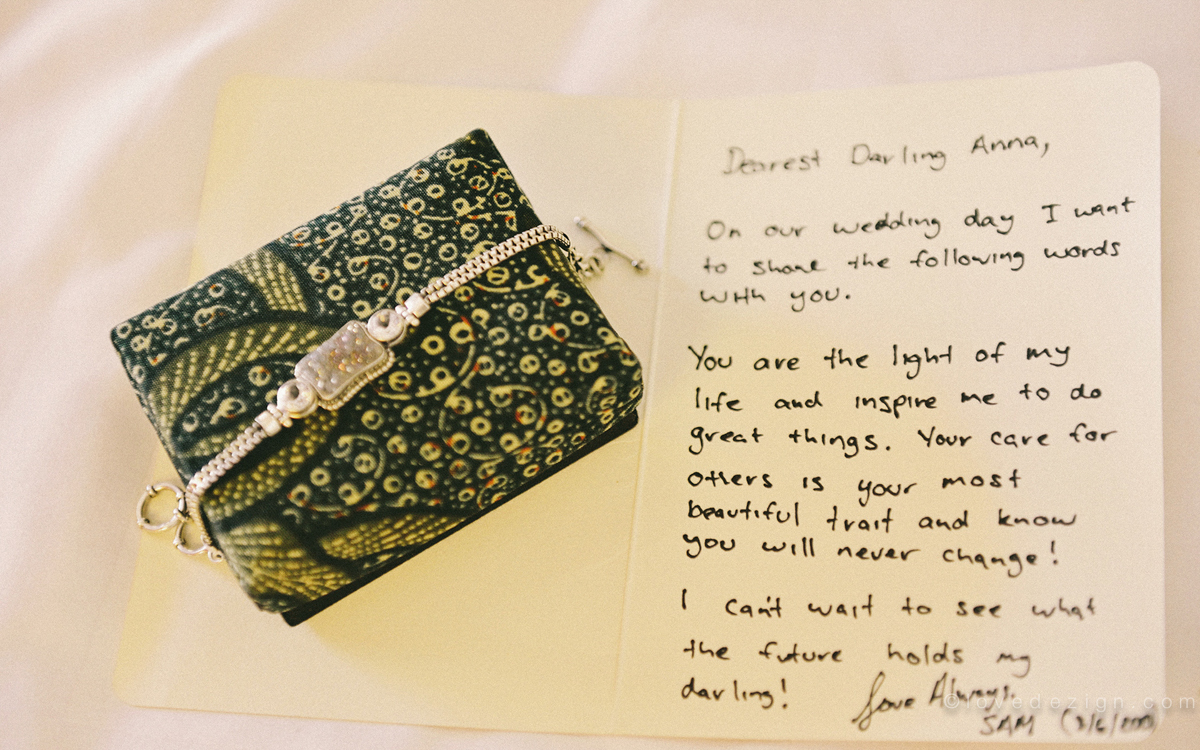 Dearest Darling Anna,
On our wedding day I want
to share the following words
with you.
You are the light of my
life and inspire me to do
great things. Your care for
others is your most
beautiful trait and know
you will never change!
I can't wait to see what
the future holds my
darling!
Love Always,
©luvedezign.com
SAM